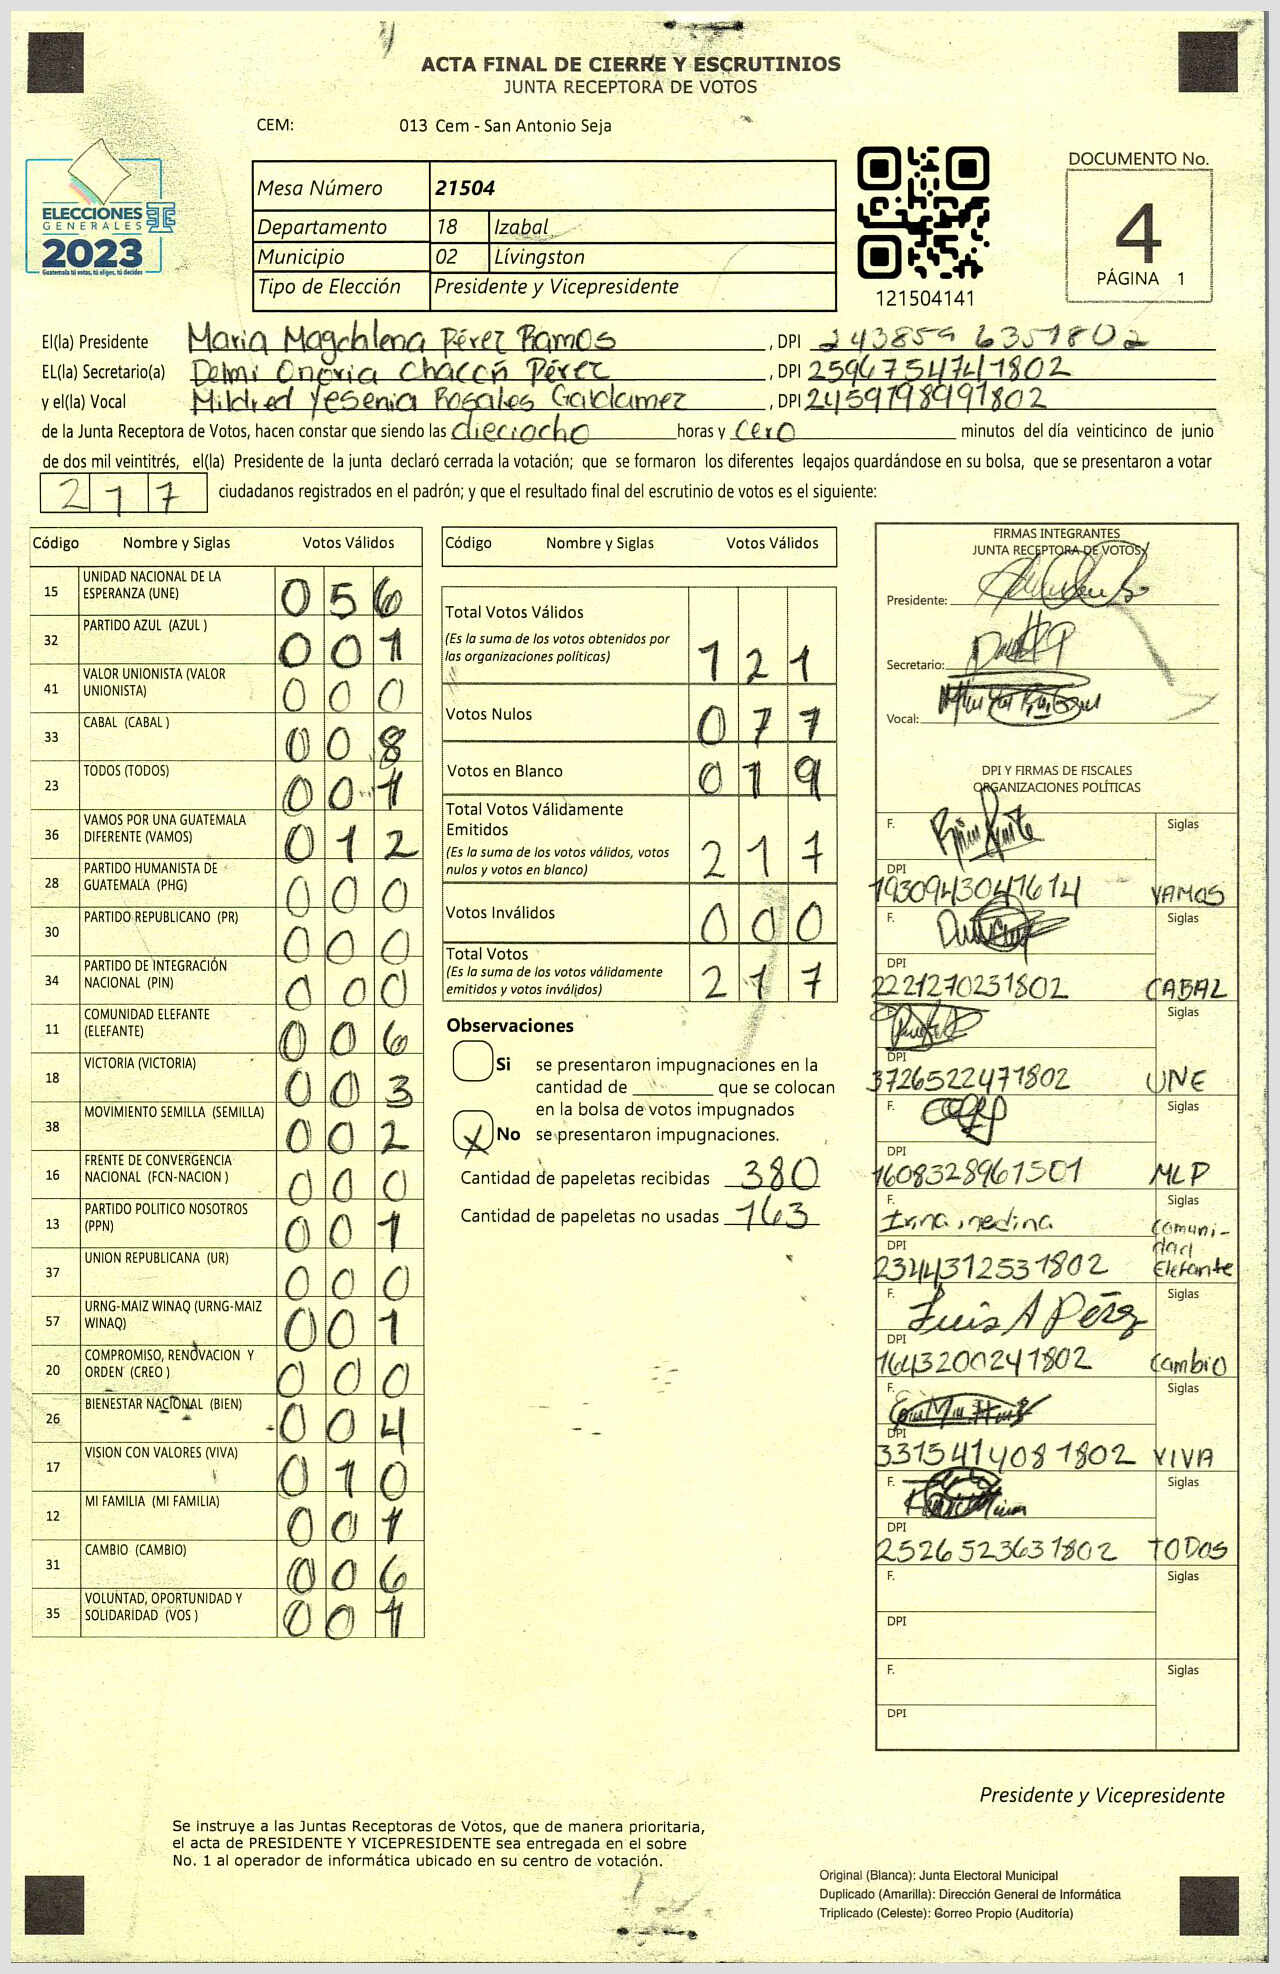 ACTA FINAL DE CIERRE Y ESCRUTINIOS
JUNTA RECEPTORA DE VOTOS
CEM: 013 Cem - San Antonio Seja
ELECCIONES
GENERALES
2023
Guatemala tú votas, tú eliges, tú decides
Mesa Número 21504
Departamento 18 Izabal
Municipio 02 Lívingston
Tipo de Elección Presidente y Vicepresidente
121504141
DOCUMENTO No.
4
PÁGINA 1
El(la) Presidente Maria Magdalena Pérez Ramos, DPI 243859 6351802
EL(la) Secretario(a) Delmi Onoria Chacón Pérez, DPI 2596754741802
y el(la) Vocal Mildred Yesenia Rosales Galdamez, DPI 2459798991802
de la Junta Receptora de Votos, hacen constar que siendo las dieciocho horas y cero minutos del día veinticinco de junio
de dos mil veintitrés, el(la) Presidente de la junta declaró cerrada la votación; que se formaron los diferentes legajos quardándose en su bolsa, que se presentaron a votar
217 ciudadanos registrados en el padrón; y que el resultado final del escrutinio de votos es el siguiente:
Código Nombre y Siglas Votos Válidos
15 UNIDAD NACIONAL DE LA ESPERANZA (UNE) 056
32 PARTIDO AZUL (AZUL ) 001
41 VALOR UNIONISTA (VALOR UNIONISTA) 000
33 CABAL (CABAL ) 008
23 TODOS (TODOS) 001
36 VAMOS POR UNA GUATEMALA DIFERENTE (VAMOS) 012
28 PARTIDO HUMANISTA DE GUATEMALA (PHG) 000
30 PARTIDO REPUBLICANO (PR) 000
34 PARTIDO DE INTEGRACIÓN NACIONAL (PIN) 000
11 COMUNIDAD ELEFANTE (ELEFANTE) 006
18 VICTORIA (VICTORIA) 003
38 MOVIMIENTO SEMILLA (SEMILLA) 002
16 FRENTE DE CONVERGENCIA NACIONAL (FCN-NACION ) 000
13 PARTIDO POLITICO NOSOTROS (PPN) 001
37 UNION REPUBLICANA (UR) 000
57 URNG-MAIZ WINAQ (URNG-MAIZ WINAQ) 001
20 COMPROMISO, RENOVACION Y ORDEN (CREO ) 000
26 BIENESTAR NACIONAL (BIEN) 004
17 VISION CON VALORES (VIVA) 010
12 MI FAMILIA (MI FAMILIA) 001
31 CAMBIO (CAMBIO) 006
35 VOLUNTAD, OPORTUNIDAD Y SOLIDARIDAD (VOS ) 001
Código Nombre y Siglas Votos Válidos
Total Votos Válidos
(Es la suma de los votos obtenidos por
las organizaciones políticas) 121
Votos Nulos 077
Votos en Blanco 019
Total Votos Válidamente
Emitidos
(Es la suma de los votos válidos, votos
nulos y votos en blanco) 217
Votos Inválidos 000
Total Votos
(Es la suma de los votos válidamente
emitidos y votos inválidos) 217
Observaciones
Si se presentaron impugnaciones en la
cantidad de ________ que se colocan
en la bolsa de votos impugnados
X No se presentaron impugnaciones.
Cantidad de papeletas recibidas 380
Cantidad de papeletas no usadas 163
FIRMAS INTEGRANTES
JUNTA RECEPTORA DE VOTOS
Presidente:
Secretario:
Vocal:
DPI Y FIRMAS DE FISCALES
ORGANIZACIONES POLÍTICAS
F. Siglas
DPI
1930943041614 VAMOS
F. Siglas
DPI
2221270231802 CABAL
F. Siglas
DPI
3726522471802 UNE
F. Siglas
DPI
1608328961501 MLP
F. Irina medina Siglas
DPI
2344312531802 Comunidad Elefante
F. Luis A Pérez Siglas
DPI
1643200241802 Cambio
F. Siglas
DPI
3315414081802 VIVA
F. Siglas
DPI
2526523631802 TODOS
F. Siglas
DPI
F. Siglas
DPI
Presidente y Vicepresidente
Se instruye a las Juntas Receptoras de Votos, que de manera prioritaria,
el acta de PRESIDENTE Y VICEPRESIDENTE sea entregada en el sobre
No. 1 al operador de informática ubicado en su centro de votación.
Original (Blanca): Junta Electoral Municipal
Duplicado (Amarilla): Dirección General de Informática
Triplicado (Celeste): Correo Propio (Auditoría)